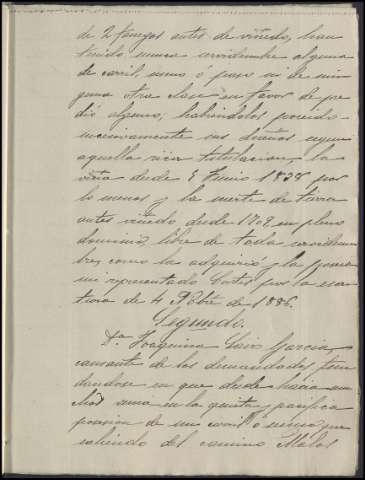 de 2 fanegas antes de viñedo, han
tenido nunca servidumbre alguna
de carril, senda ó paso ni de nin
guna otra clase en favor de pre
dio alguno, habiéndolos poseido
sucesivamente sus dueños segun
aquella rica titulacion, la
viña desde 8 Junio 1838 por
lo menos y la suerte de tierra
antes viñedo desde 1769 en pleno
dominio, libre de toda servidum
bre, como la adquirió y la posee
mi representado Cortes por la escri
tura de 4 Obre de 1886.
Segundo.
Da. Joaquina Garcia,
causante de los demandados, fun
dandose en que desde hacia mu
chos años en la quieta, pacífica
posesion de un carril ó senda que
saliendo del camino Malos